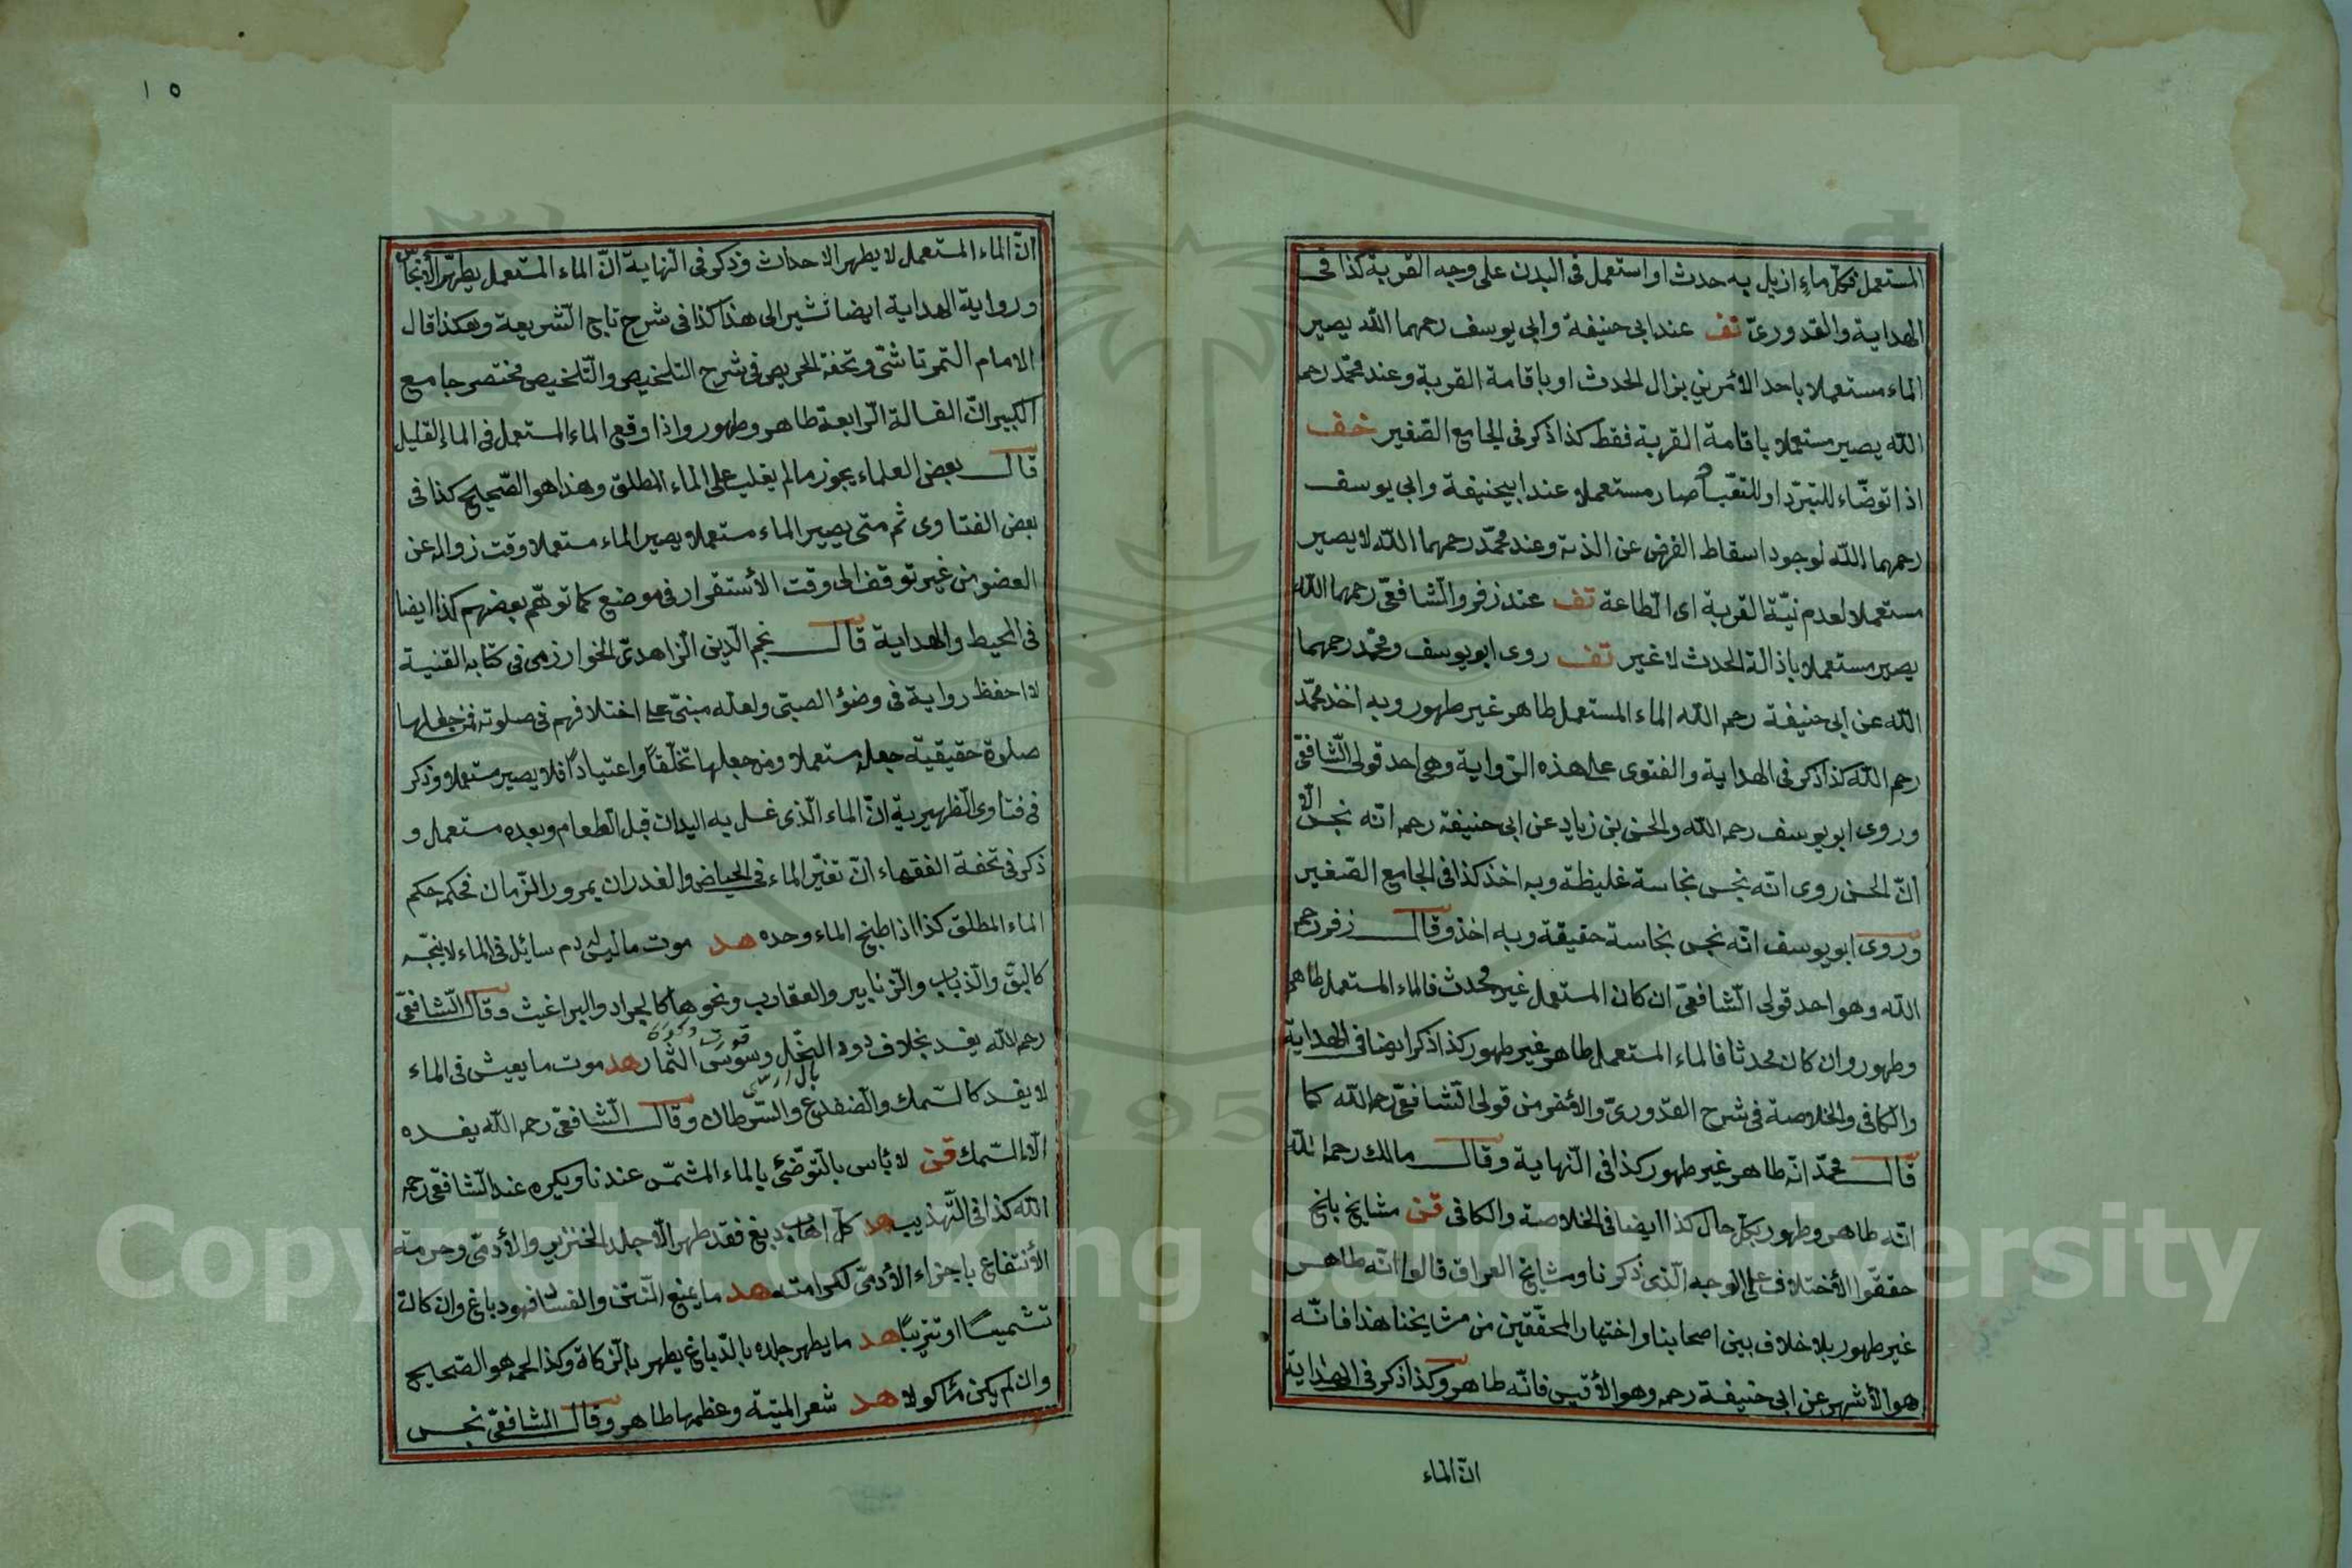 المستعمل فكل ماء ازيل به حدث او استعمل فى البدن على وجه القربة كذا فى
الهداية والقدورىّ تف عند ابى حنيفة وابى يوسف رحمهما الله يصير
الماء مستعملا باحد الأمرين بزال الحدث او باقامة القربة وعند محمّد رحمه
الله يصير مستعملا باقامة القربة فقط كذا ذكر فى الجامع الصّغير خف
اذا توضّاء للتبرّد او للتقيا صار مستعملا عند ابيحنيفة وابى يوسف
رحمهما الله لوجود اسقاط الفرض عن الذمة وعند محمّد رحمهما الله لا يصير
مستعملا لعدم نيّة القربة اى الطّاعة تف عند زفر والشّافعىّ رحمهما الله
يصير مستعملا باذالة الحدث لا غير تف روى ابو يوسف ومحمّد رحمهما
الله عن ابى حنيفة رحمه الله الماء المستعمل طاهر غير طهور وبه اخذ محمّد
رحمه الله كذا ذكر فى الهداية والفتوى على هذه الرّواية وهى احد قولى الشّافعىّ
وروى ابو يوسف رحمه الله والحسن بن زياد عن ابى حنيفة رحمه انّه نجس الّا
انّ الحسن روى انّه نجس نجاسة غليظة وبه اخذ كذا فى الجامع الصّغير
وروى ابو يوسف انّه نجس نجاسة حقيقة وبه اخذ وقال زفر رحمه
الله وهو احد قولى الشّافعىّ ان كان المستعمل غير محدث فالماء المستعمل طاهر
وطهور وان كان محدثا فالماء المستعمل طاهر غير طهور كذا ذكر ايضا فى الهداية
والكافى والخلاصة فى شرح القدورىّ والأشهر من قولى الشّافعىّ رحمه الله كما
قال محمّد انّه طاهر غير طهور كذا فى النّهاية وقال مالك رحمه الله
انّه طاهر وطهور بكلّ حال كذا ايضا فى الخلاصة والكافى قن مشايخ بلخ
حققّوا الأختلاف على الوجه الّذى ذكرنا ومشايخ العراق قالوا انّه طاهر
غير طهور بلا خلاف بين اصحابنا واختيار المحقّقين من مشايخنا هذا فانّه
هو الأشهر عن ابى حنيفة رحمه وهو الأقيس فانّه طاهر وكذا ذكر فى الهداية
انّ الماء
١٥
انّ الماء المستعمل لا يطهر الاحداث وذكر فى النّهاية انّ الماء المستعمل يطهّر الأنجاس
ورواية الهداية ايضا تشير الى هذا كذا فى شرح تاج الشّريعة وهكذا قال
الامام التمرتاشىّ وتحفة الحريص فى شرح التلخيص والتّلخيص مختصر جامع
الكبير انّ الغسالة الرّابعة طاهر وطهور واذا وقع الماء المستعمل فى الماء القليل
قال بعض العلماء يجوز مالم يغلب على الماء المطلق وهذا هو الصّحيح كذا فى
بعض الفتاوى ثم متى يصير الماء مستعملا يصير الماء مستعملا وقت زواله عن
العضو من غير توقف الى وقت الأستقرار فى موضع كما توهّم بعضهم كذا ايضا
فى المحيط والهداية قال نجم الدّين الزّاهدىّ الخوارزمى فى كتابه القنية
لا احفظ رواية فى وضؤ الصبىّ ولعله مبنىّ على اختلافهم فى صلوته فمن جعلها
صلوة حقيقية جعله مستعملا ومن جعلها تخلّقاً واعتياداً فلا يصير مستعملا وذكر
فى فتاوى الظهيرية انّ الماء الّذى غسل به اليدان قبل الطّعام وبعده مستعمل و
ذكر فى تحفة الفقهاء انّ تغيّر الماء فى الحياض والغدران بمرور الزّمان فحكمه حكم
الماء المطلق كذا اذا طبخ الماء وحده هد موت ما ليس له دم سائل فى الماء لا ينجّسه
كالبقّ والذّباب والزّنابير والعقارب ونحوها كالجراد والبراغيث وقال الشّافعىّ
رحمه الله يفسد بخلاف دود النّخل وسوس الثّمار هد موت ما يعيش فى الماء
لا يفسد كالسّمك والضفدع والسّرطان وقال الشّافعىّ رحمه الله يفسده
الّا السّمك قن لا بأس بالتّوضّئ بالماء المشمّس عندنا ويكره عند الشّافعىّ رحمه
الله كذا فى التّهذيب هد كلّ اهاب دبغ فقد طهر الّا جلد الخنزير والأدمىّ وحرمة
الأنتفاع باجزاء الأدمىّ لكرامته هد ما يمنع النّتن والفساد فهو دباغ وان كان
تشميسًا او تتريبًا هد ما يطهر جلده بالدّباغ يطهر بالزّكاة وكذا لحمه هو الصّحيح
وان لم يكن مأكولا هد شعر الميتة وعظمها طاهر وقال الشافعىّ نجس
Copyright © King Saud University
1957